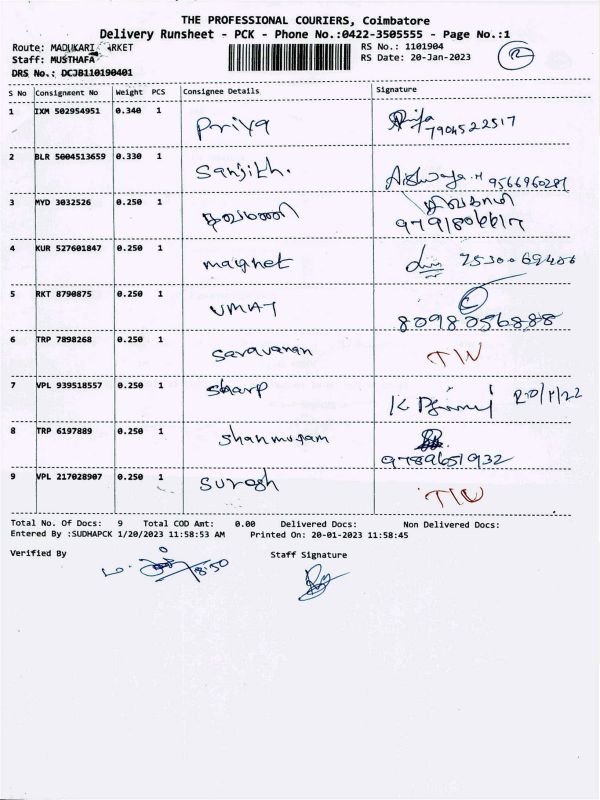 THE PROFESSIONAL COURIERS, Coimbatore
Delivery Runsheet - PCK - Phone No.:0422-3505555 - Page No.:1
Route: MADUKARI ARKET
RS No.: 1101904
Staff: MUSTHAFA
RS Date: 20-Jan-2023
DRS No.: DCJB110190401
S No Consignment No Weight PCS Consignee Details Signature
1 IXM 502954951 0.340 1 Priya 7904522517
2 BLR 5004513659 0.330 1 Sanjith. Aishwarya.M 9566960281
3 MYD 3032526 0.250 1 தவமணி 9791806617
4 KUR 527601847 0.250 1 magnet 7530069486
5 RKT 8790875 0.250 1 UMAT 8098056888
6 TRP 7898268 0.250 1 Saravanan
7 VPL 939518557 0.250 1 Sharp K
8 TRP 6197889 0.250 1 Shanmugam 9789651932
9 VPL 217028907 0.250 1 Suresh
Total No. Of Docs: 9 Total COD Amt: 0.00 Delivered Docs: Non Delivered Docs:
Entered By :SUDHAPCK 1/20/2023 11:58:53 AM Printed On: 20-01-2023 11:58:45
Verified By Staff Signature